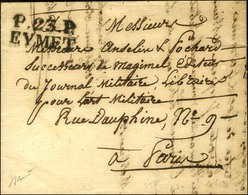 P.23.P
EYMET
Messieurs
Messieurs Anselin & Pochard
Successeurs de Magimel, Editeurs
du Journal Militaire, Libraire
pour l'art Militaire
Rue Dauphine, N.º 9
à Paris